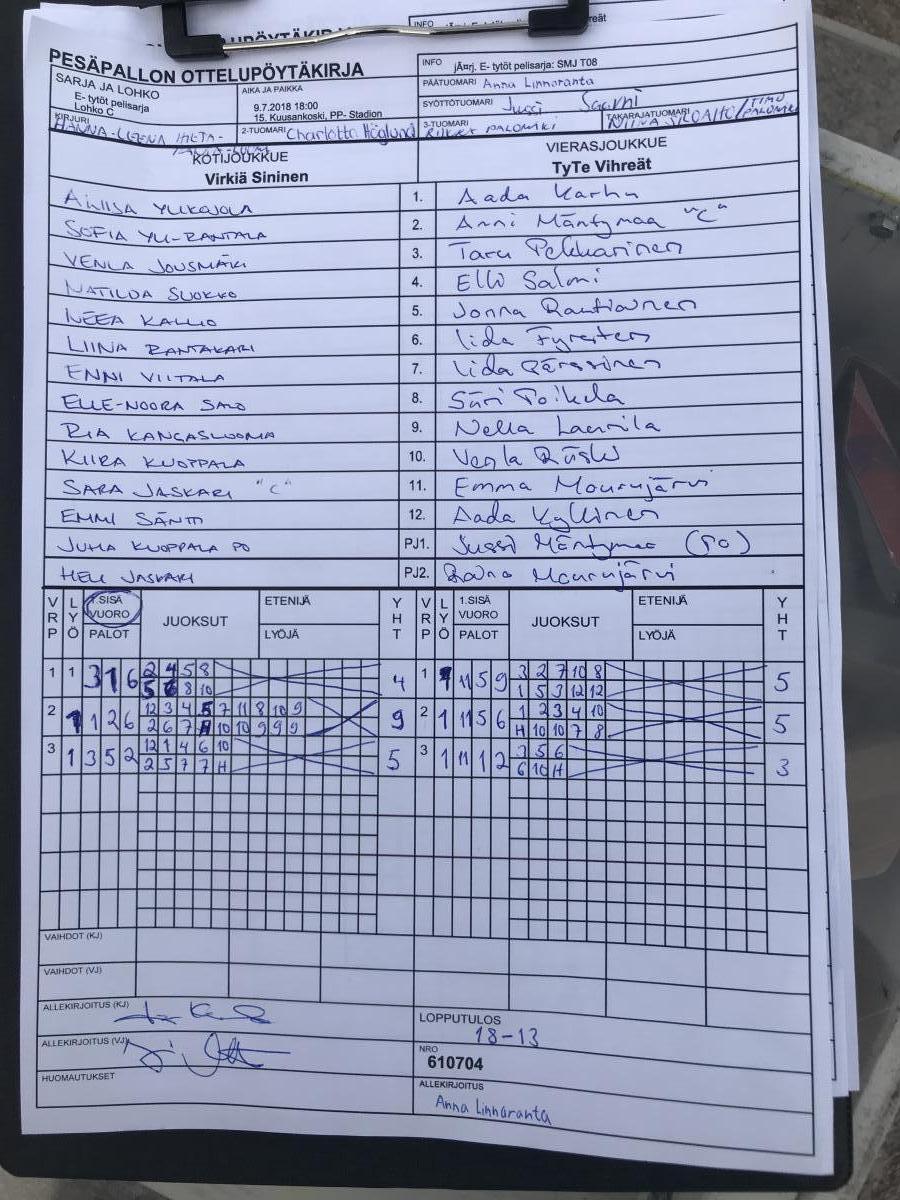 PESÄPALLON OTTELUPÖYTÄKIRJA
INFO jÄ¤rj. E- tytöt pelisarja: SMJ T08
SARJA JA LOHKO
E- tytöt pelisarja
Lohko C
AIKA JA PAIKKA
9.7.2018 18:00
15. Kuusankoski, PP- Stadion
PÄÄTUOMARI Anna Linnoranta
SYÖTTÖTUOMARI Jussi Saarni
KIRJURI
2-TUOMARI Charlotta Höglund
3-TUOMARI
TAKARAJATUOMARI
KOTIJOUKKUE
Virkiä Sininen
VIERASJOUKKUE
TyTe Vihreät
1. Aada Karhu
SOFIA YLI-RANTALA 2. Anni Mäntymaa "C"
VENLA JOUSMÄKI 3. Taru Pekkarinen
MATILDA SUOKKO 4. Elli Salmi
NEEA KALLIO 5. Jonna Rautiainen
LIINA RANTAKARI 6. Iida
ENNI VIITALA 7. Iida
ELLE-NOORA SALO 8. Siiri Poikela
RIA KANGASLUOMA 9. Nella Laurila
KIIRA KUOPPALA 10. Venla
SARA JASKARI "C" 11. Emma Mourujärvi
EMMI SÄNTTI 12. Aada Kyllinen
JUHA KUOPPALA PO PJ1. Jussi Mäntymaa (PO)
HELI JASKARI PJ2. Mourujärvi
VRP LYÖ 1.SISÄ VUORO PALOT JUOKSUT ETENIJÄ LYÖJÄ YHT VRP LYÖ 1.SISÄ VUORO PALOT JUOKSUT ETENIJÄ LYÖJÄ YHT
1 1 3 1 6 2 4 5 8 4 1 1 11 5 9 3 2 7 10 8 5
5 6 8 10 1 5 3 12 12
2 1 1 2 6 12 3 4 5 7 11 8 10 9 9 2 1 11 5 6 1 2 3 4 10 5
2 6 7 H 10 10 9 9 9 H 10 10 7 8
3 1 3 5 2 12 1 4 6 10 5 3 1 11 1 2 3 5 6 3
2 5 7 7 H 6 10 H
VAIHDOT (KJ)
VAIHDOT (VJ)
ALLEKIRJOITUS (KJ)
LOPPUTULOS
18-13
ALLEKIRJOITUS (VJ)
NRO
610704
HUOMAUTUKSET
ALLEKIRJOITUS
Anna Linnaranta